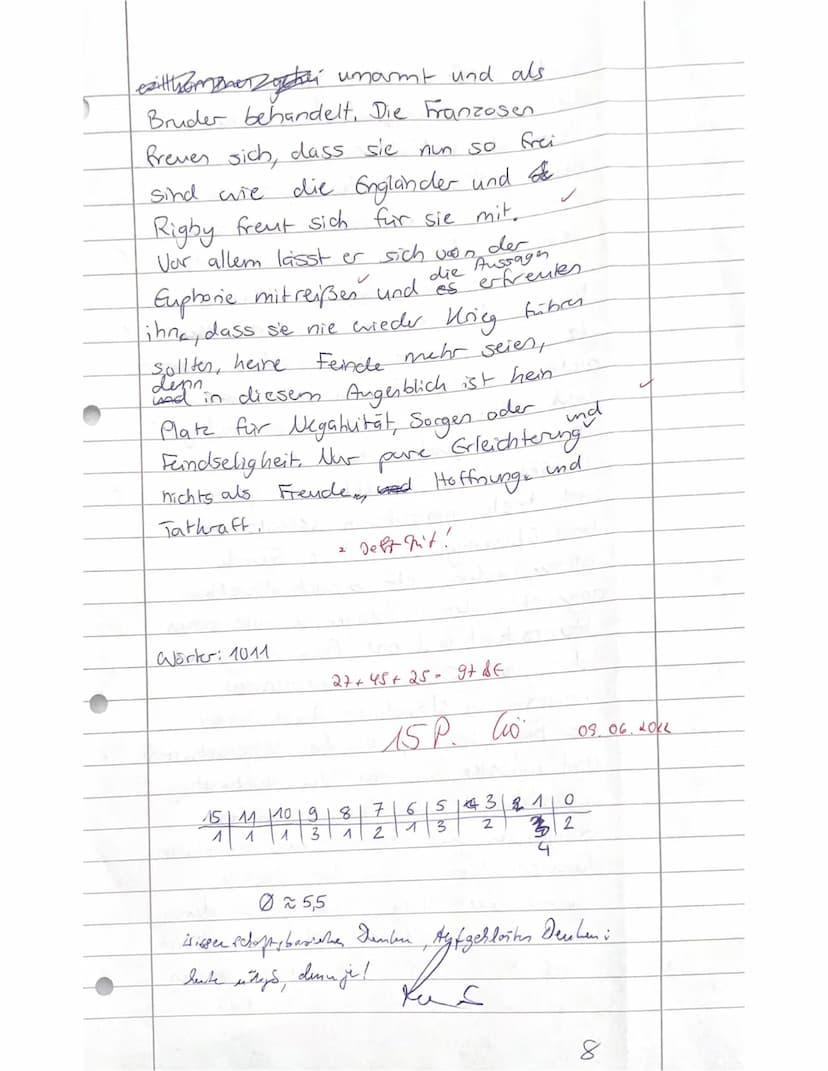 umarmt und als
Bruder behandelt. Die Franzosen
freuen sich, dass sie nun so frei
sind wie die Engländer und
Rigby freut sich für sie mit.
Vor allem lässt er sich von der
Euphorie mitreißen und die Aussagen erfreuten
ihn, dass sie nie wieder Krieg führen
sollten, keine Feinde mehr seien,
denn in diesem Augenblick ist kein
Platz für Negativität, Sorgen oder
Feindseligkeit. Nur pure Erleichterung und
nichts als Freude, Hoffnung und
Tatkraft.
Wörter: 1011
27 + 45 + 25 = 97 BE
15 P. 09.06.2022
15 11 10 9 8 7 6 5 3 1 0
1 1 1 3 1 2 1 3 2 4 2
Ø ≈ 5,5
Denken, Aufgeklärtes Denken:
heute nötig, denn je!
8